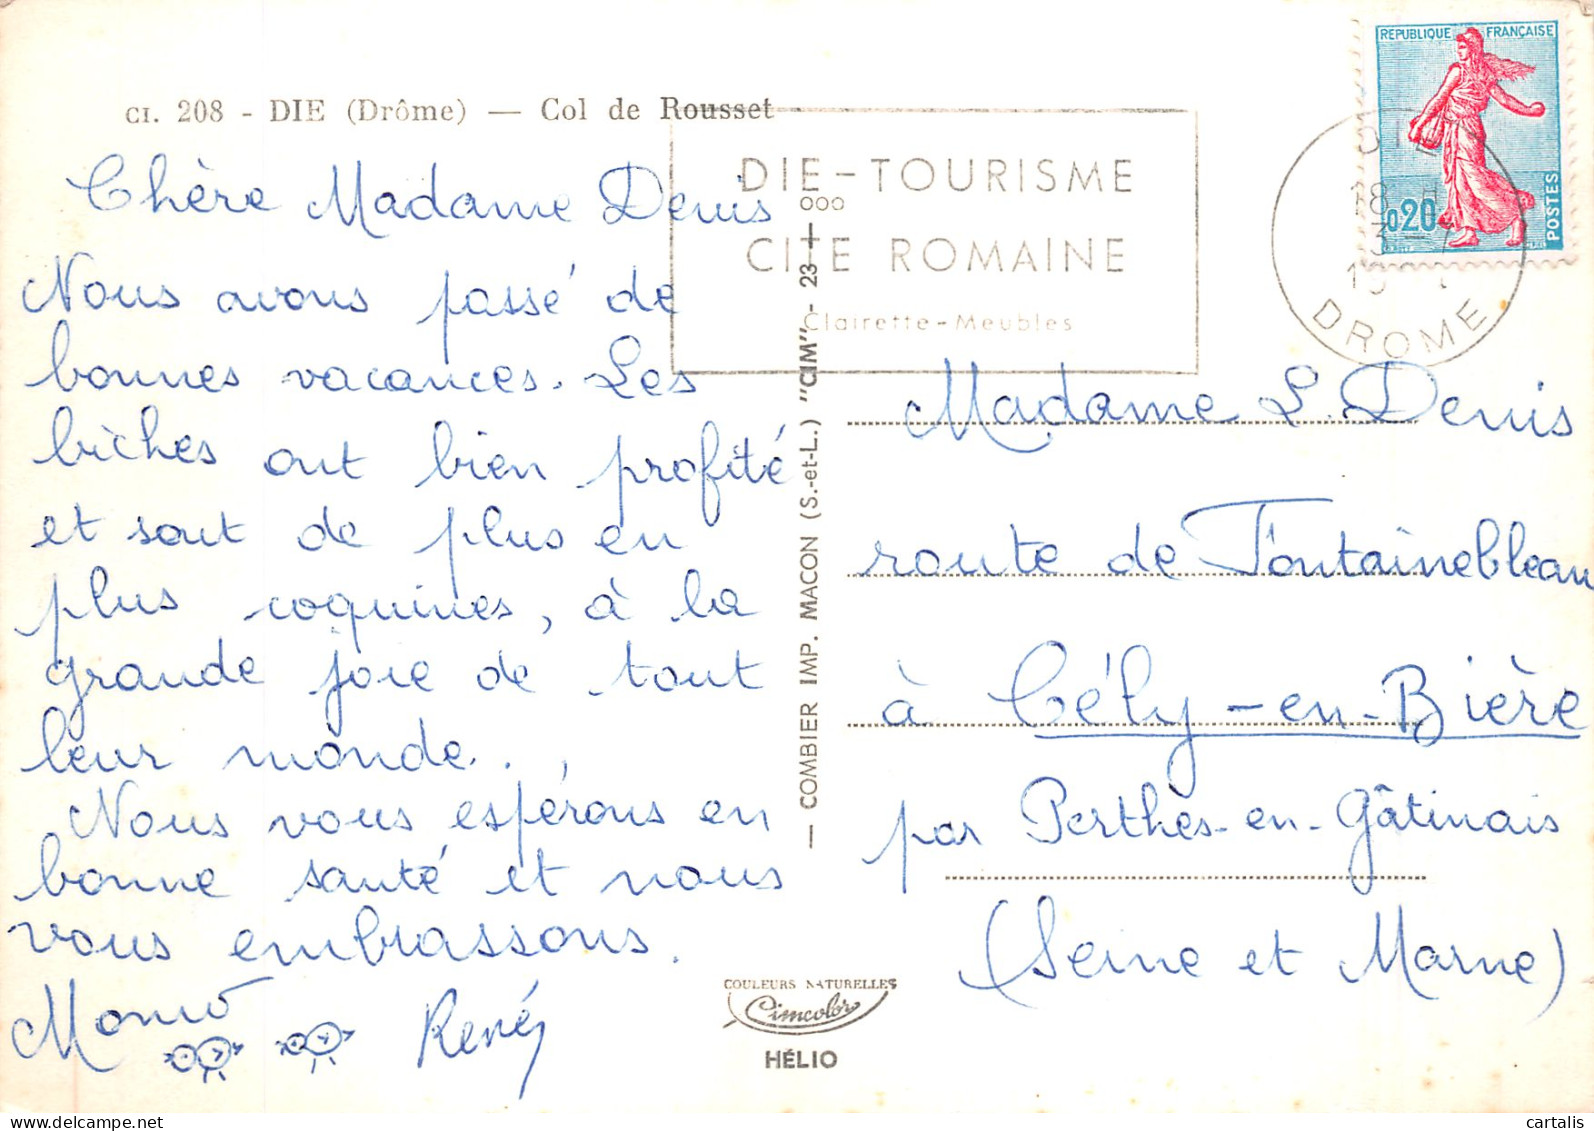 CI. 208 - DIE (Drôme) — Col de Rousset
REPUBLIQUE FRANÇAISE
0,20
POSTES
DIE-TOURISME
CITE ROMAINE
Clairette-Meubles
DIE
18 H
3-7
DROME
Chère Madame Denis
Nous avons passé de
bonnes vacances. Les
biches ont bien profité
et sont de plus en
plus coquines, à la
grande joie de tout
leur monde..
Nous vous espérons en
bonne santé et nous
vous embrassons.
René
— COMBIER IMP. MACON (S.-et-L.) "CIM" - 23
Madame L. Denis
route de Fontainebleau
à Cély-en-Bière
par Perthes-en-Gâtinais
(Seine et Marne)
COULEURS NATURELLES
Cimcolor
HÉLIO
cartalis
www.delcampe.net